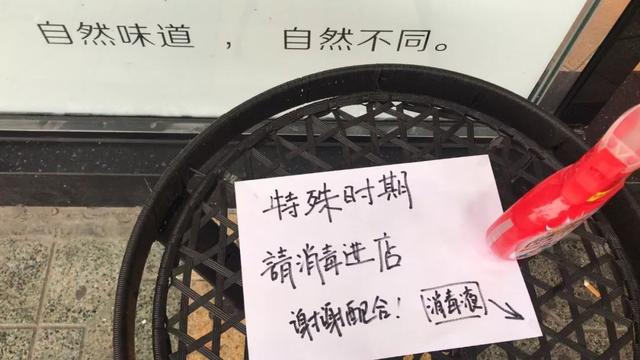 自然味道 ， 自然不同。
特殊时期
請消毒进店
谢谢配合！ 消毒液